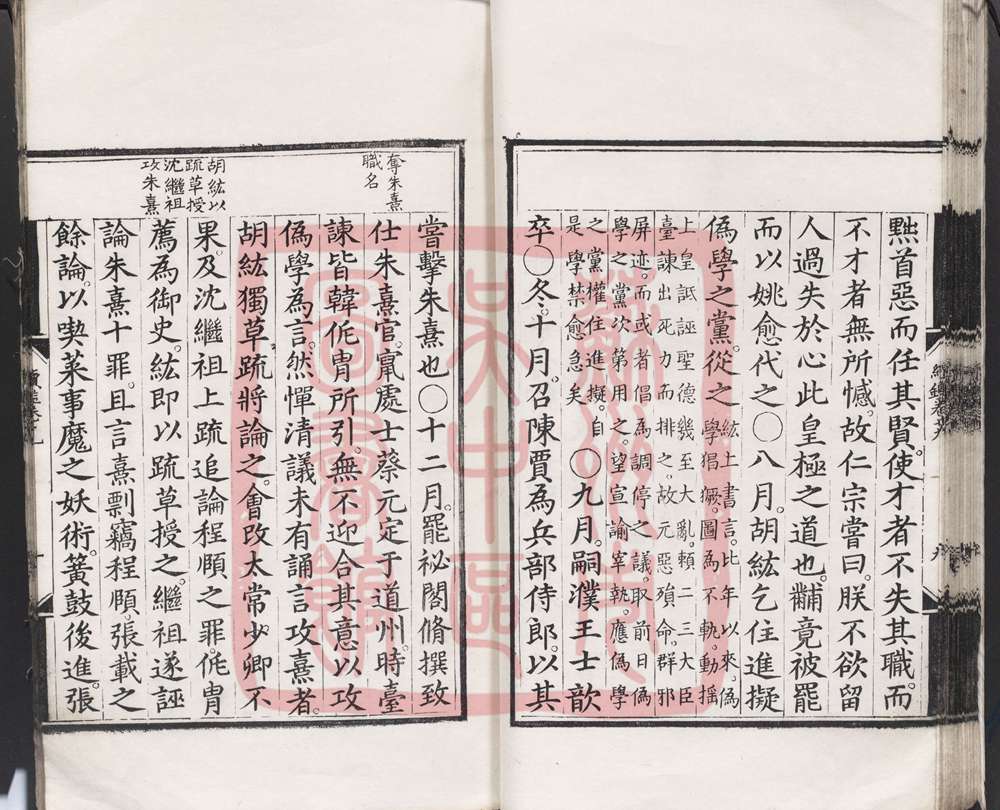 黜首惡而任其賢。使才者不失其職。而
不才者無所憾。故仁宗嘗曰。朕不欲留
人過失於心此皇極之道也。黼竟被罷
而以姚愈代之〇八月。胡紘乞住進擬
僞學之黨。從之 紘上書言。比年以來。僞
學猖獗。圖為不軌。動搖
上皇。詆誣聖德幾至大亂。賴二三大臣
臺諫出死力而排之。故元惡殞命。群邪
屏迹。而或者倡為調停之議。取前日僞
學之黨。次第用之。望宣諭宰執。應僞學
之黨。權住進擬。自
是學禁愈急矣 〇九月。嗣濮王士歆
卒〇冬。十月。召陳賈為兵部侍郎。以其
奪朱熹
職名
嘗擊朱熹也〇十二月。罷祕閣脩撰致
仕朱熹官。竄處士蔡元定于道州。時臺
諫皆韓侂冑所引。無不迎合其意以攻
僞學為言。然憚清議未有誦言攻熹者。
胡紘以
疏草授
沈繼祖
攻朱熹
胡紘獨草疏將論之。會改太常。少卿不
果。及沈繼祖上疏追論程頤之罪。侂冑
薦為御史。紘即以疏草授之。繼祖遂誣
論朱熹十罪。且言熹剽竊程頤。張載之
餘論。以喫菜事魔之妖術。簧鼓後進。張